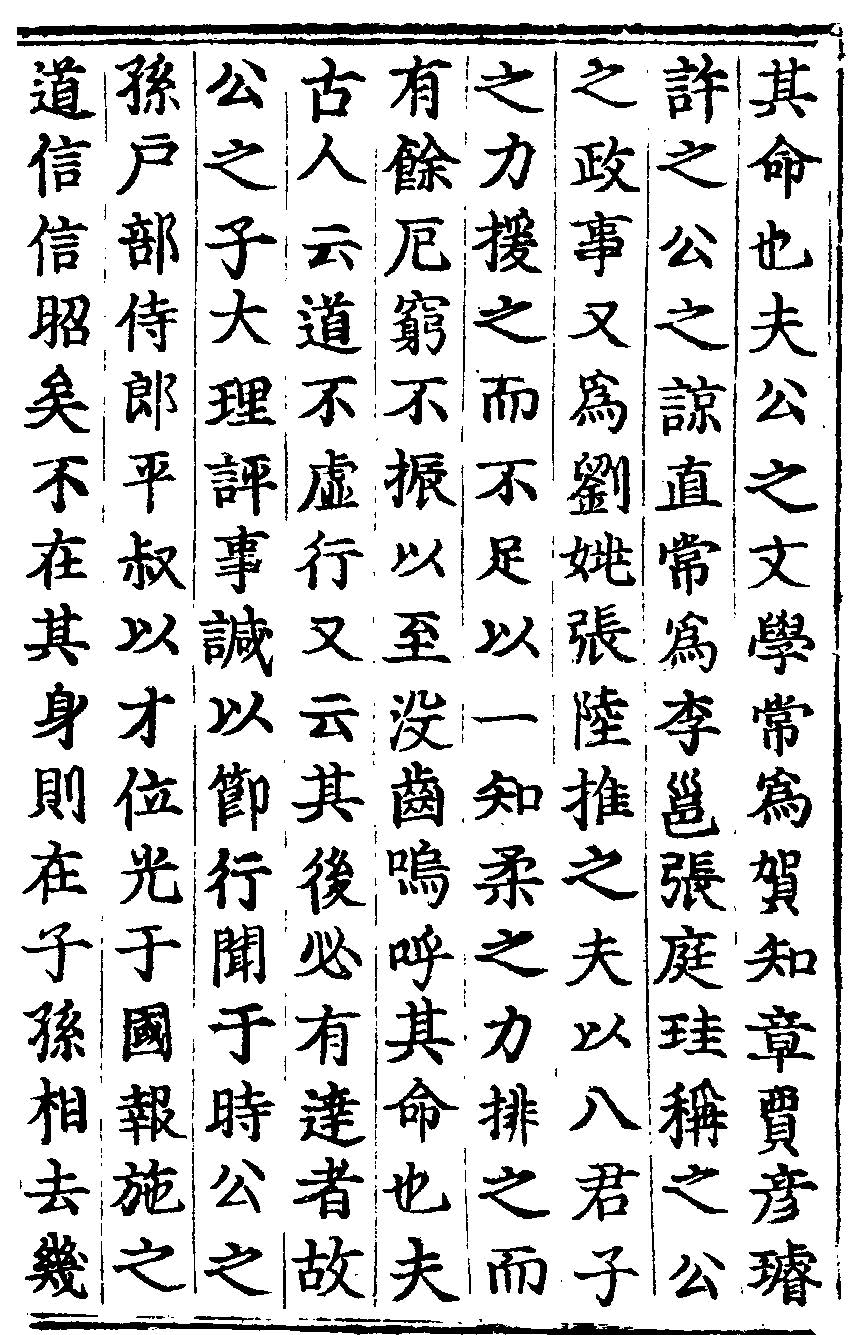 其命也夫公之文學常爲賀知章賈彥璿
許之公之諒直常爲李邕張庭珪稱之公
之政事又爲劉姚張陸推之夫以八君子
之力援之而不足以一知柔之力排之而
有餘厄窮不振以至沒齒嗚呼其命也夫
古人云道不虛行又云其後必有達者故
公之子大理評事諴以節行聞于時公之
孫戶部侍郎平叔以才位光于國報施之
道信信昭矣不在其身則在子孫相去幾